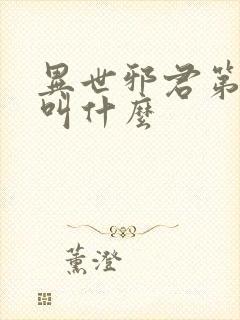 異世邪君第
叫什麼
薰澄